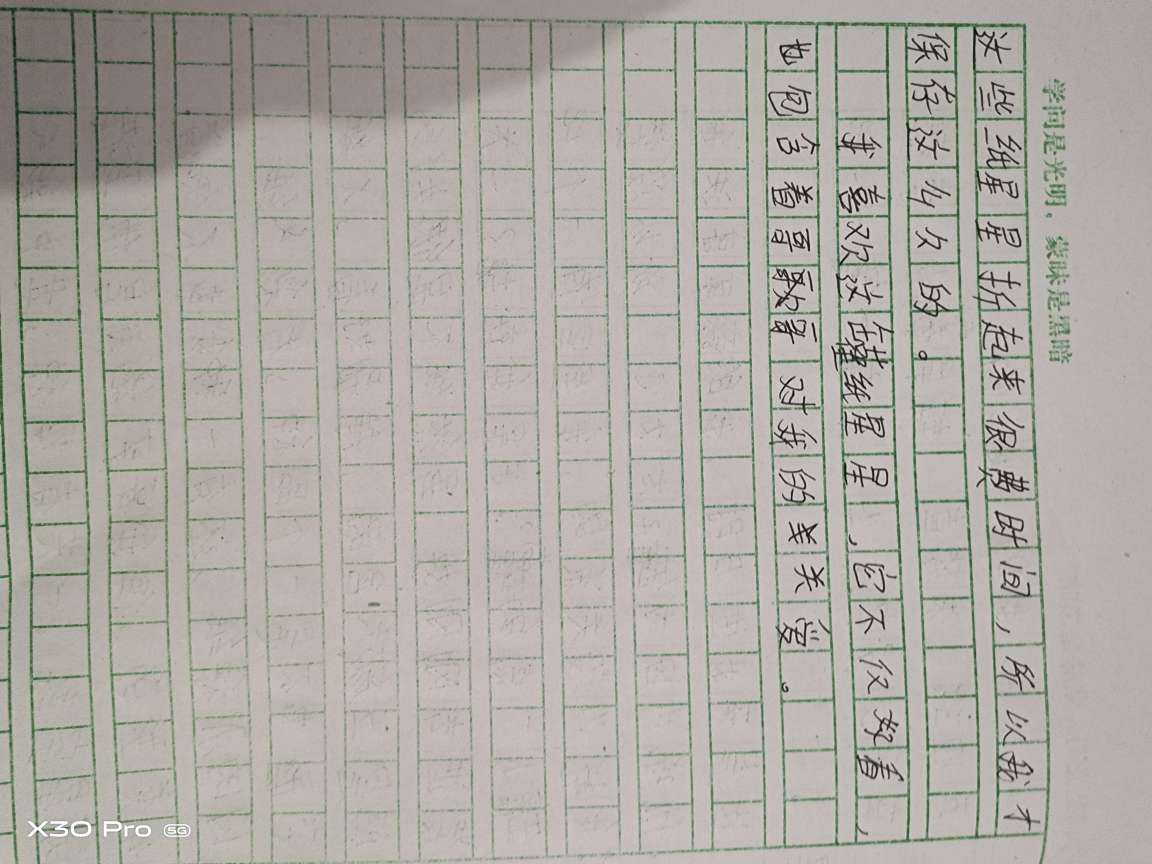 学问是光明，蒙昧是黑暗
这些纸星星折起来很费时间，所以我才
保存这么久的。
我喜欢这罐纸星星，它不仅好看，
也包含着哥歌哥对我的关关爱。
X30 Pro 5G